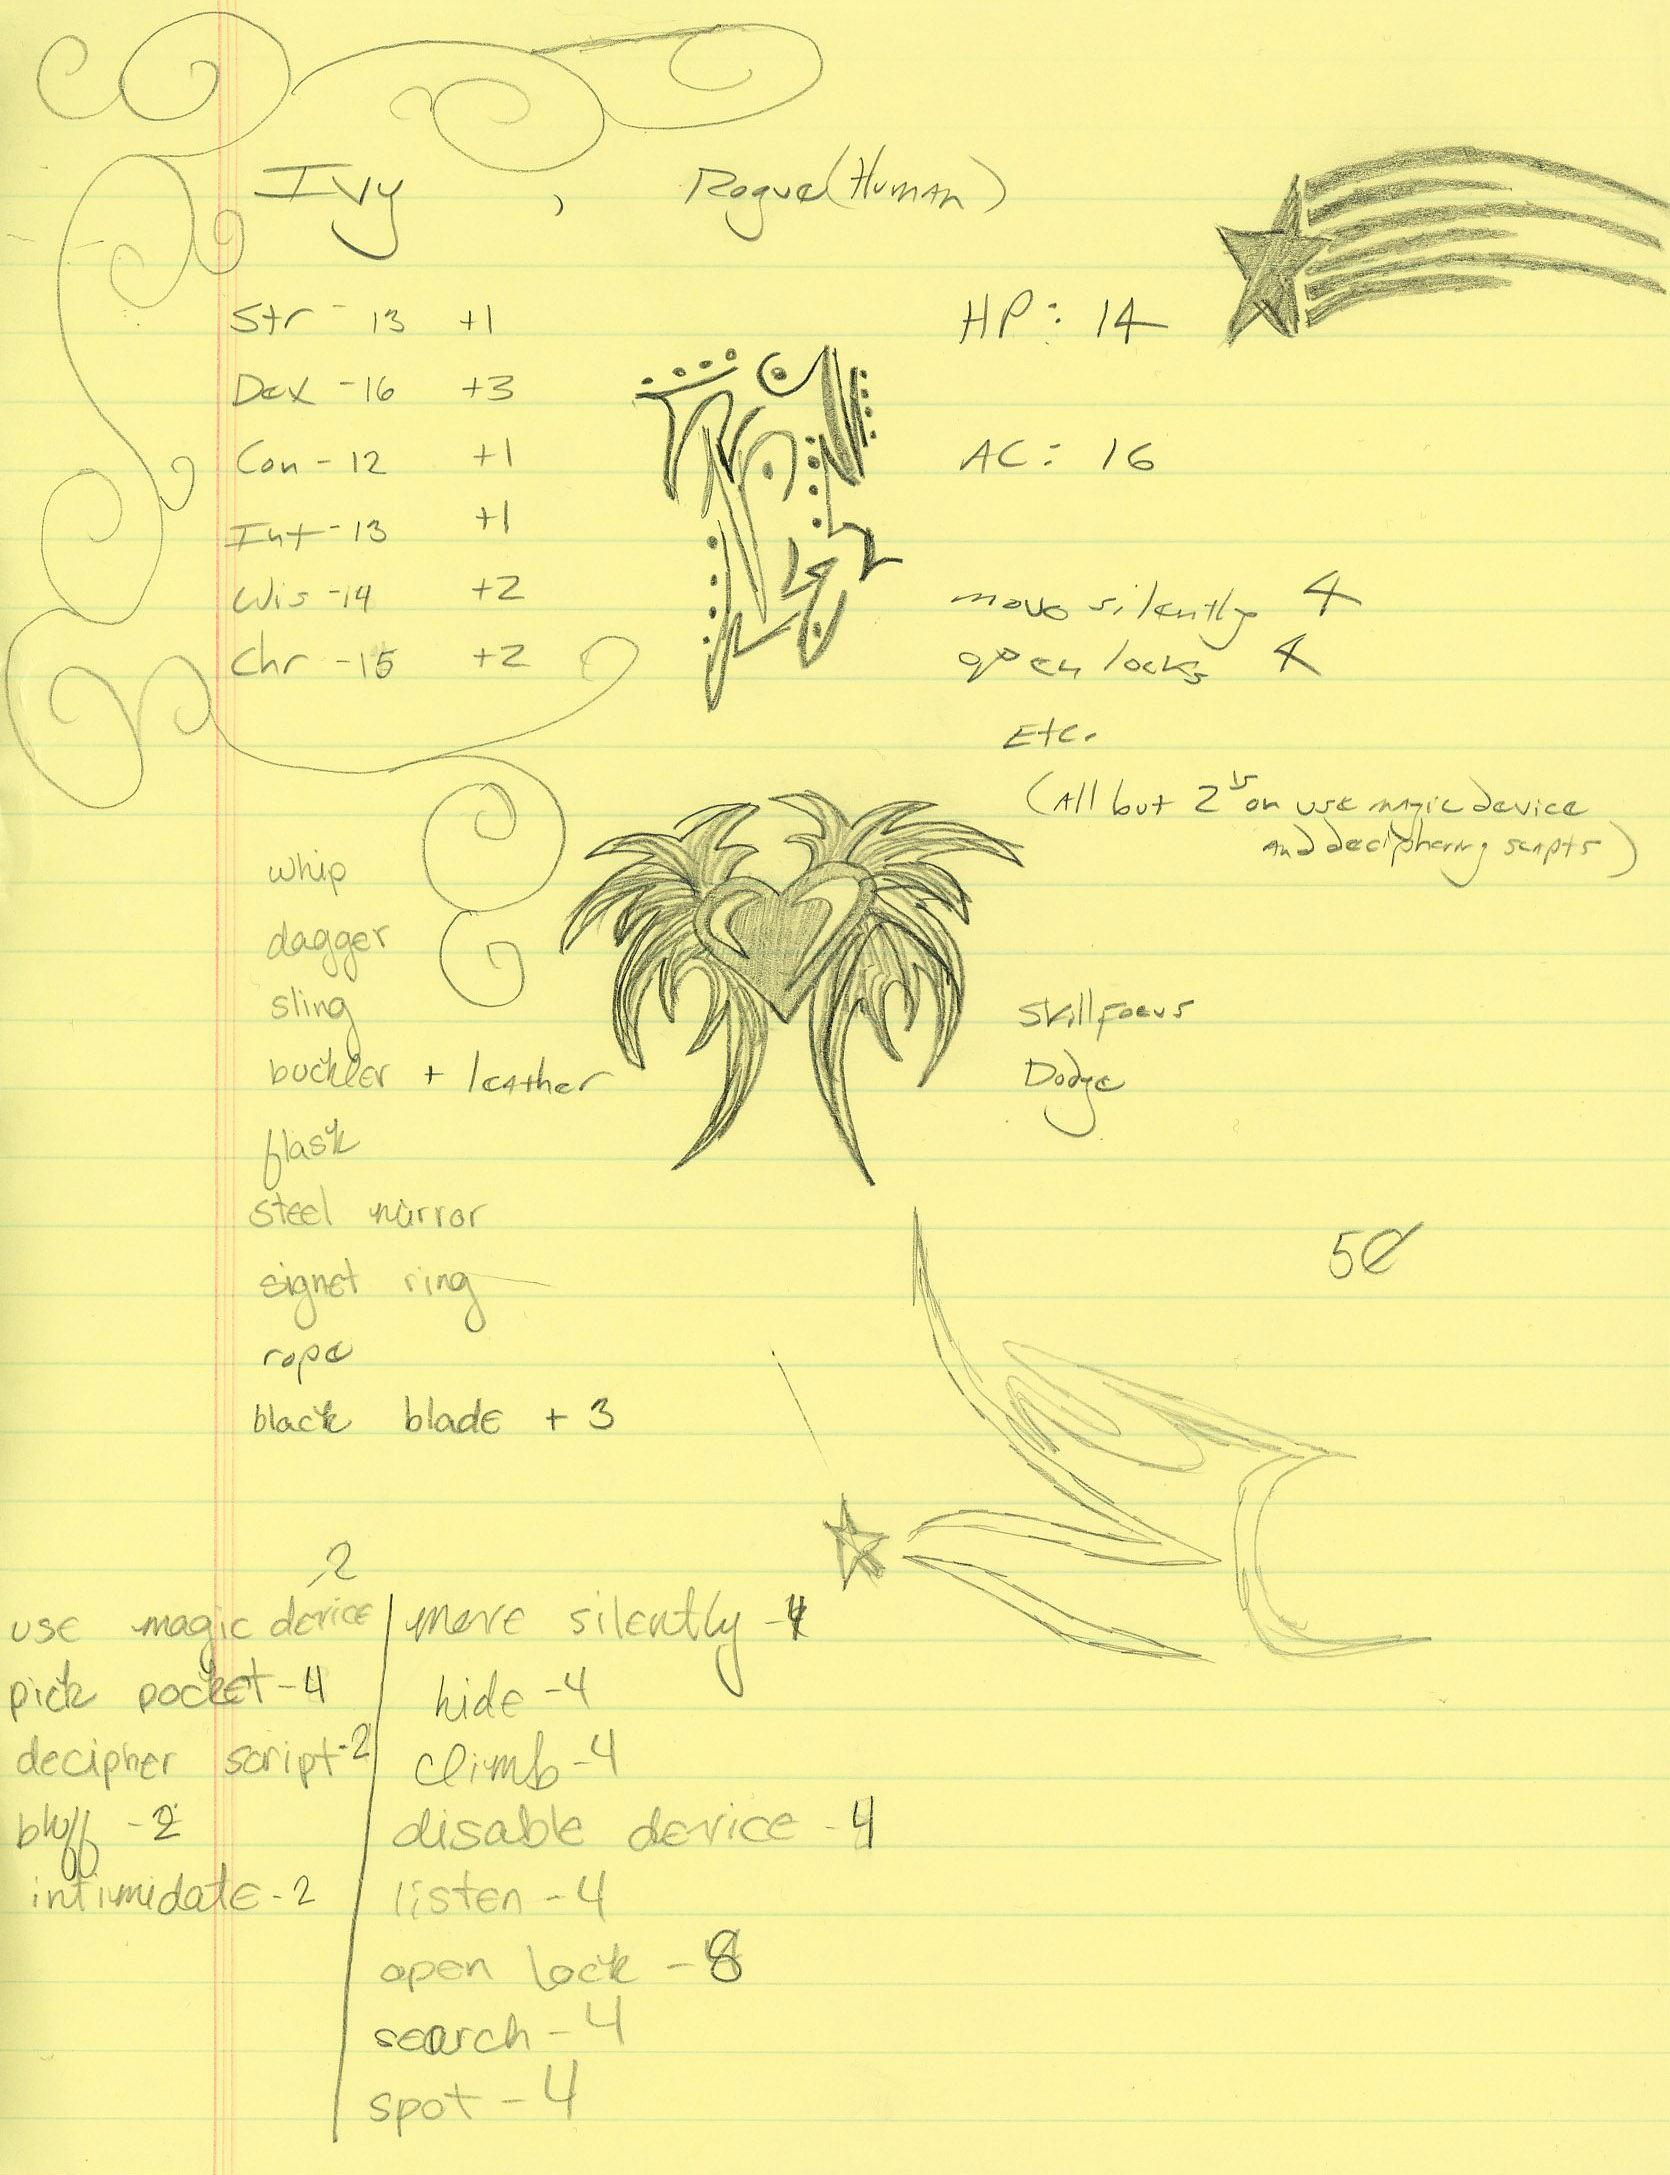 Ivy , Rogue (Human)
Str - 13 +1
Dex - 16 +3
Con - 12 +1
Int - 13 +1
Wis - 14 +2
Chr - 15 +2
HP: 14
AC: 16
move silently 4
open locks 4
Etc.
(All but 2's on use magic device
and deciphering scripts)
whip
dagger
sling
buckler + leather
flask
steel mirror
signet ring
rope
black blade + 3
Skill focus
Dodge
5¢
use magic device -2
pick pocket - 4
decipher script - 2
bluff - 2
intimidate - 2
move silently - 4
hide - 4
climb - 4
disable device - 4
listen - 4
open lock - 8
search - 4
spot - 4